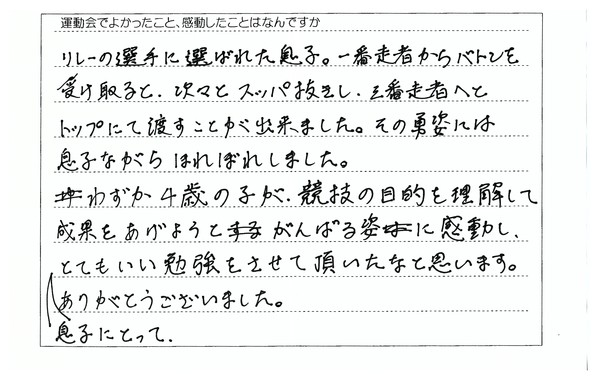 運動会でよかったこと、感動したことはなんですか
リレーの選手に選ばれた息子。一番走者からバトンを
受け取ると、次々とスッパ抜きし、三番走者へと
トップにて渡すことが出来ました。その勇姿には
息子ながらほれぼれしました。
わずか4歳の子が、競技の目的を理解して
成果をあげようとするがんばる姿はに感動し、
とてもいい勉強をさせて頂いたなと思います。
ありがとうございました。
息子にとって、